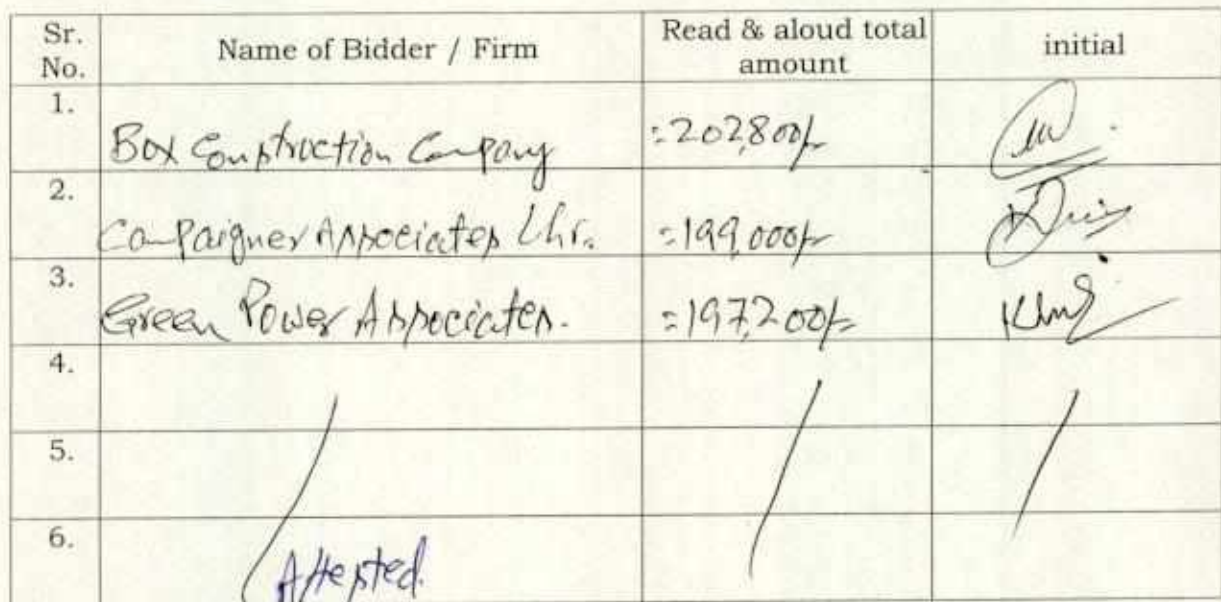 Sr. No. Name of Bidder / Firm Read & aloud total amount initial
1. Box Construction Company =202,800/-
2. Campaigner Associates Lhr. =199,000/-
3. Green Power Associates. =197,200/-
4.
5.
6.
Attested